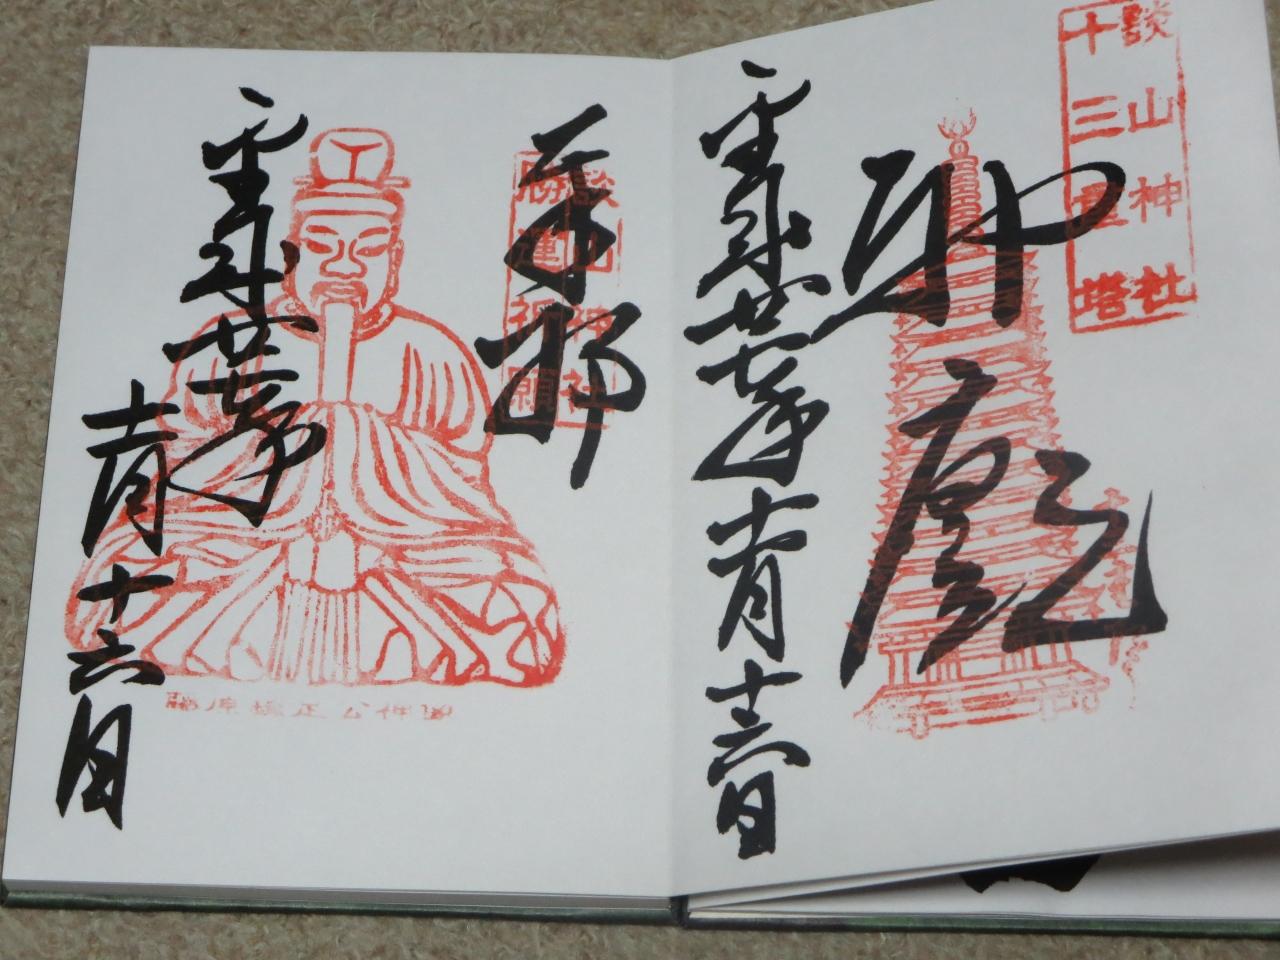 談山神社
十三重塔
平成廿七年十一月十六日
奉拝
談山神社
勝運祈願
平成廿七年
十一月十六日
藤原鎌足公神像